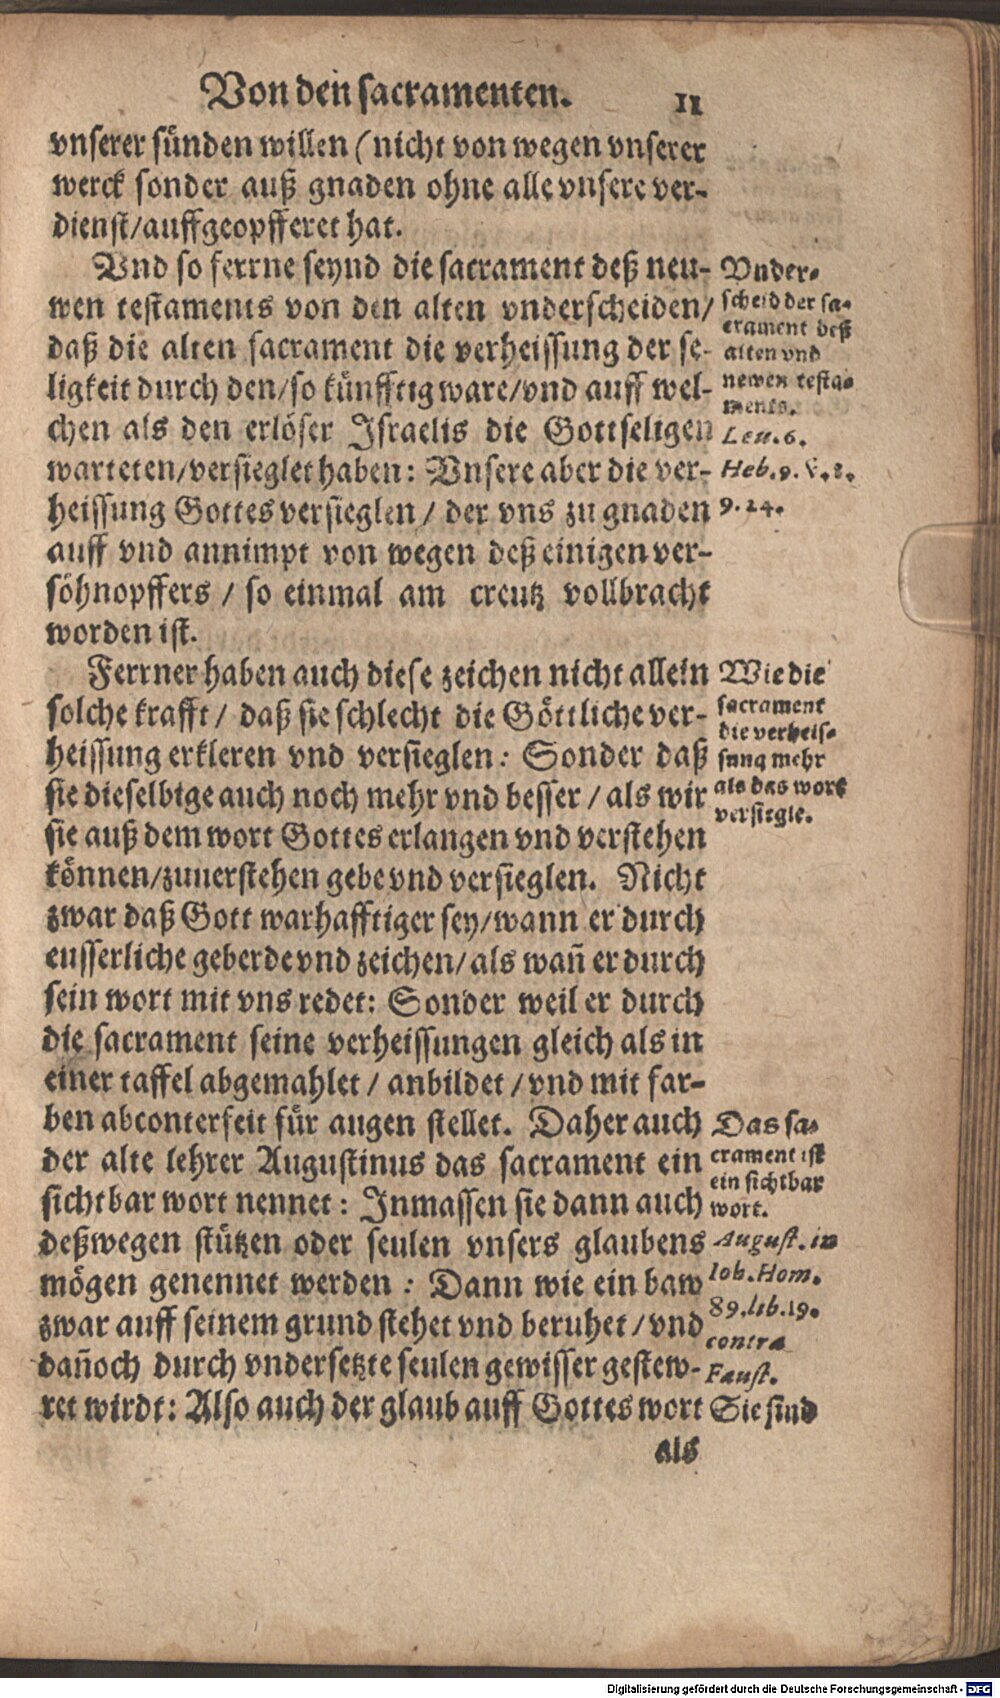 Von den sacramenten. 11
vnserer sünden willen (nicht von wegen vnserer
werck sonder auß gnaden ohne alle vnsere ver-
dienst/auffgeopfferet hat.
Vnd so ferrne seynd die sacrament deß neu-
wen testaments von den alten vnderscheiden/
daß die alten sacrament die verheissung der se-
ligkeit durch den/so künfftig ware/vnd auff wel-
chen als den erlöser Israelis die Gottseligen
warteten/versieglet haben: Vnsere aber die ver-
heissung Gottes versieglen/ der vns zu gnaden
auff vnd annimpt von wegen deß einigen ver-
söhnopffers / so einmal am creutz vollbracht
worden ist.
Vnder-
scheid der sa-
crament deß
alten vnd
newen testa-
ments.
Leu. 6.
Heb. 9. V. 8.
9. 24.
Ferrner haben auch diese zeichen nicht allein
solche krafft/ daß sie schlecht die Göttliche ver-
heissung erkleren vnd versieglen: Sonder daß
sie dieselbige auch noch mehr vnd besser / als wir
sie auß dem wort Gottes erlangen vnd verstehen
können/zuuerstehen gebe vnd versieglen. Nicht
zwar daß Gott warhafftiger sey/wann er durch
eusserliche geberde vnd zeichen/als wañ er durch
sein wort mit vns redet: Sonder weil er durch
die sacrament seine verheissungen gleich als in
einer taffel abgemahlet / anbildet /vnd mit far-
ben abconterfeit für augen stellet. Daher auch
der alte lehrer Augustinus das sacrament ein
sichtbar wort nennet: Inmassen sie dann auch
deßwegen stützen oder seulen vnsers glaubens
mögen genennet werden: Dann wie ein baw
zwar auff seinem grund stehet vnd beruhet/vnd
dañoch durch vndersetzte seulen gewisser gestew-
ret wirdt: Also auch der glaub auff Gottes wort
Wie die
sacrament
die verheis-
sung mehr
als das wort
versiegle.
Das sa-
crament ist
ein sichtbar
wort.
August. in
Ioh. Hom.
89. lib. 19.
contra
Faust.
Sie sind
als
Digitalisierung gefördert durch die Deutsche Forschungsgemeinschaft - DFG